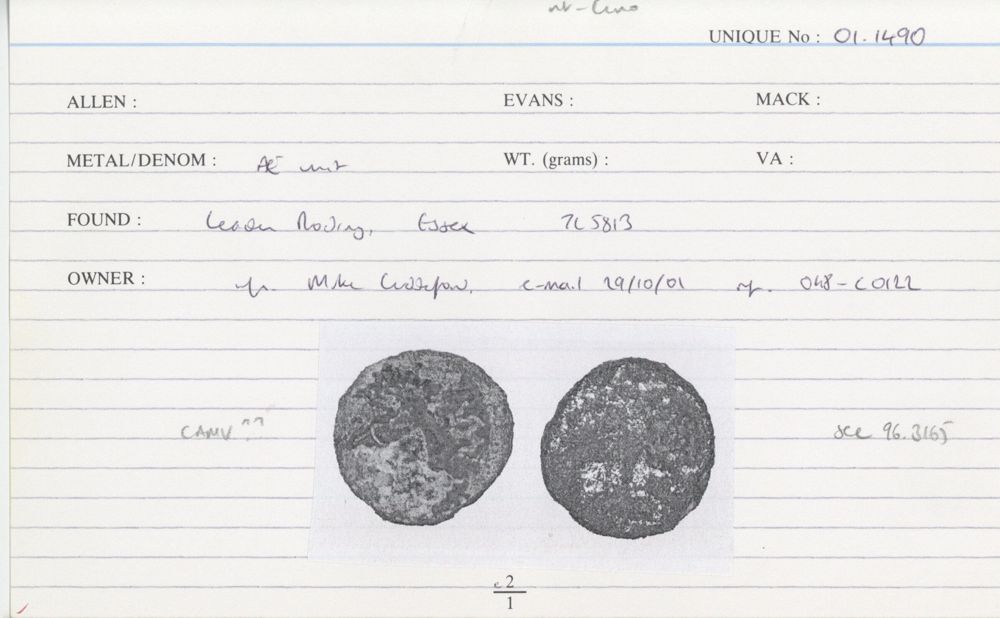 UNIQUE No : 01.1490
ALLEN : EVANS : MACK :
METAL/DENOM : Æ unit WT. (grams) : VA :
FOUND : Leaden Roding, Essex TL 5813
OWNER : Mike e-mail 29/10/01 048-C0122
CAMV see 96.3165
c 2
1